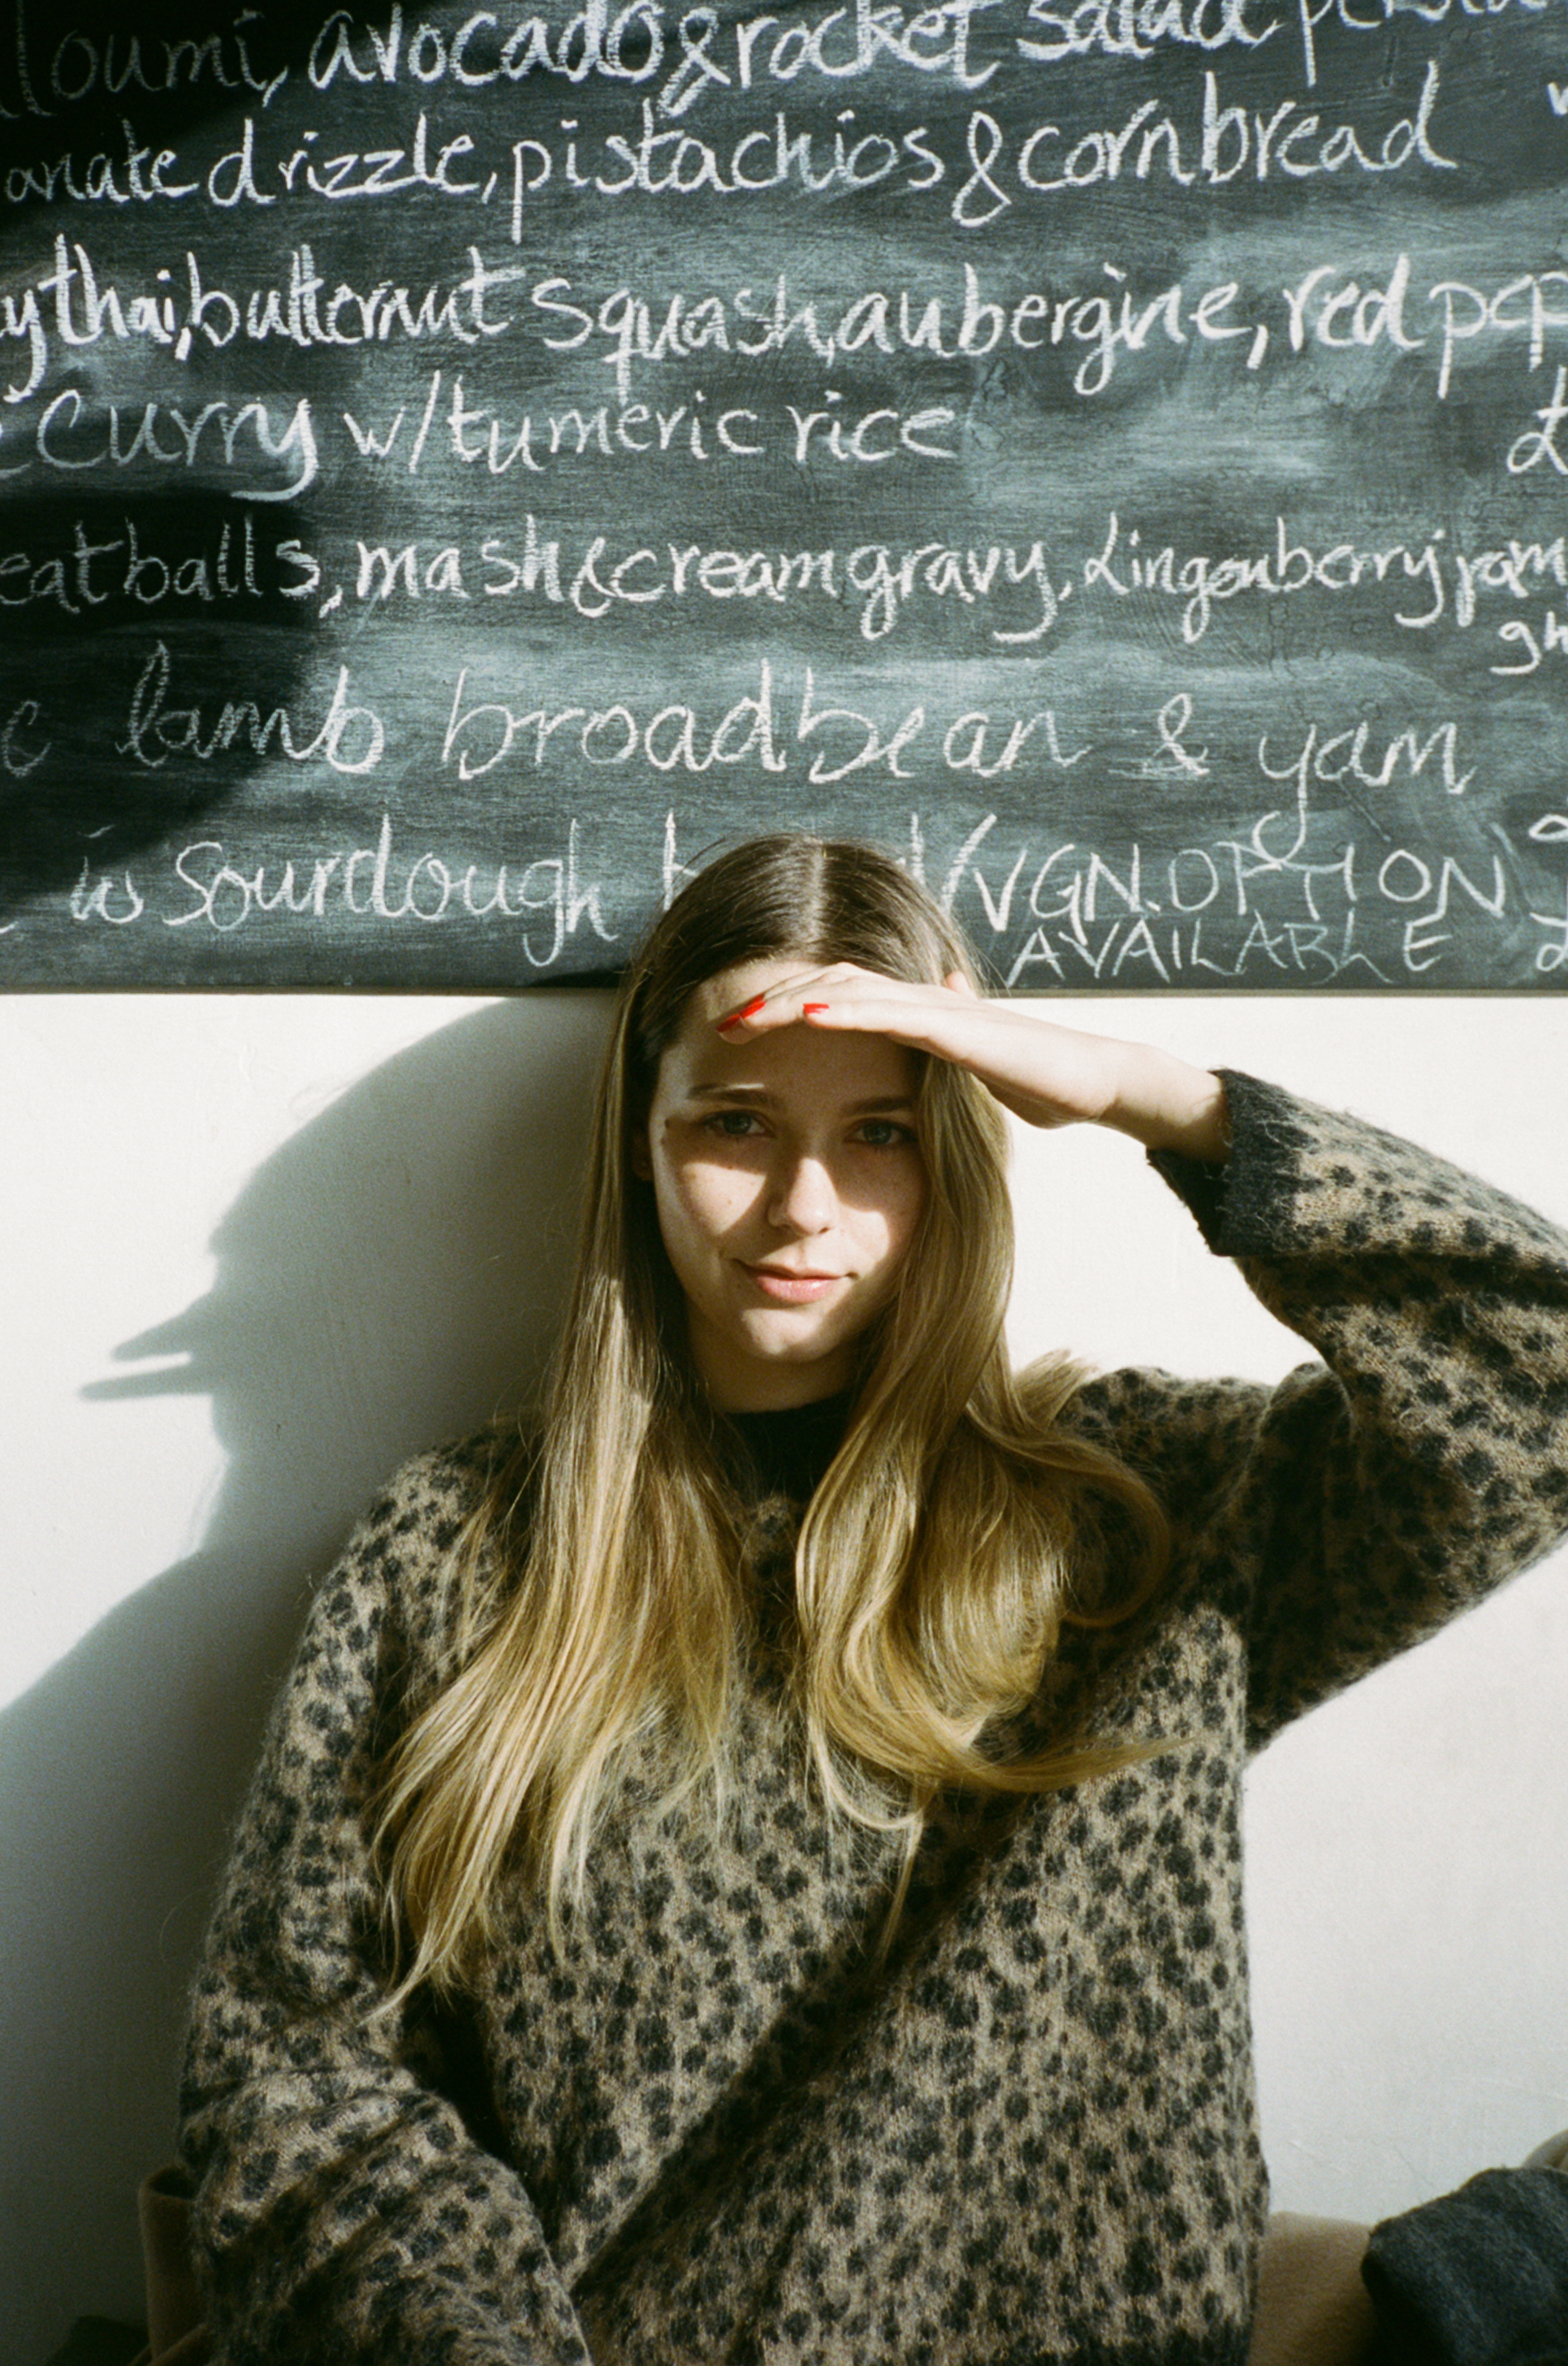 lloumi, avocado & rocket salad
anate drizzle, pistachios & cornbread
y thai, butternut squash, aubergine, red pep
curry w/tumeric rice
£
eatballs, mash & cream gravy, Lingonberry jam
c lamb broadbean & yam
w sourdough (VGN. OPTION
AVAILABLE